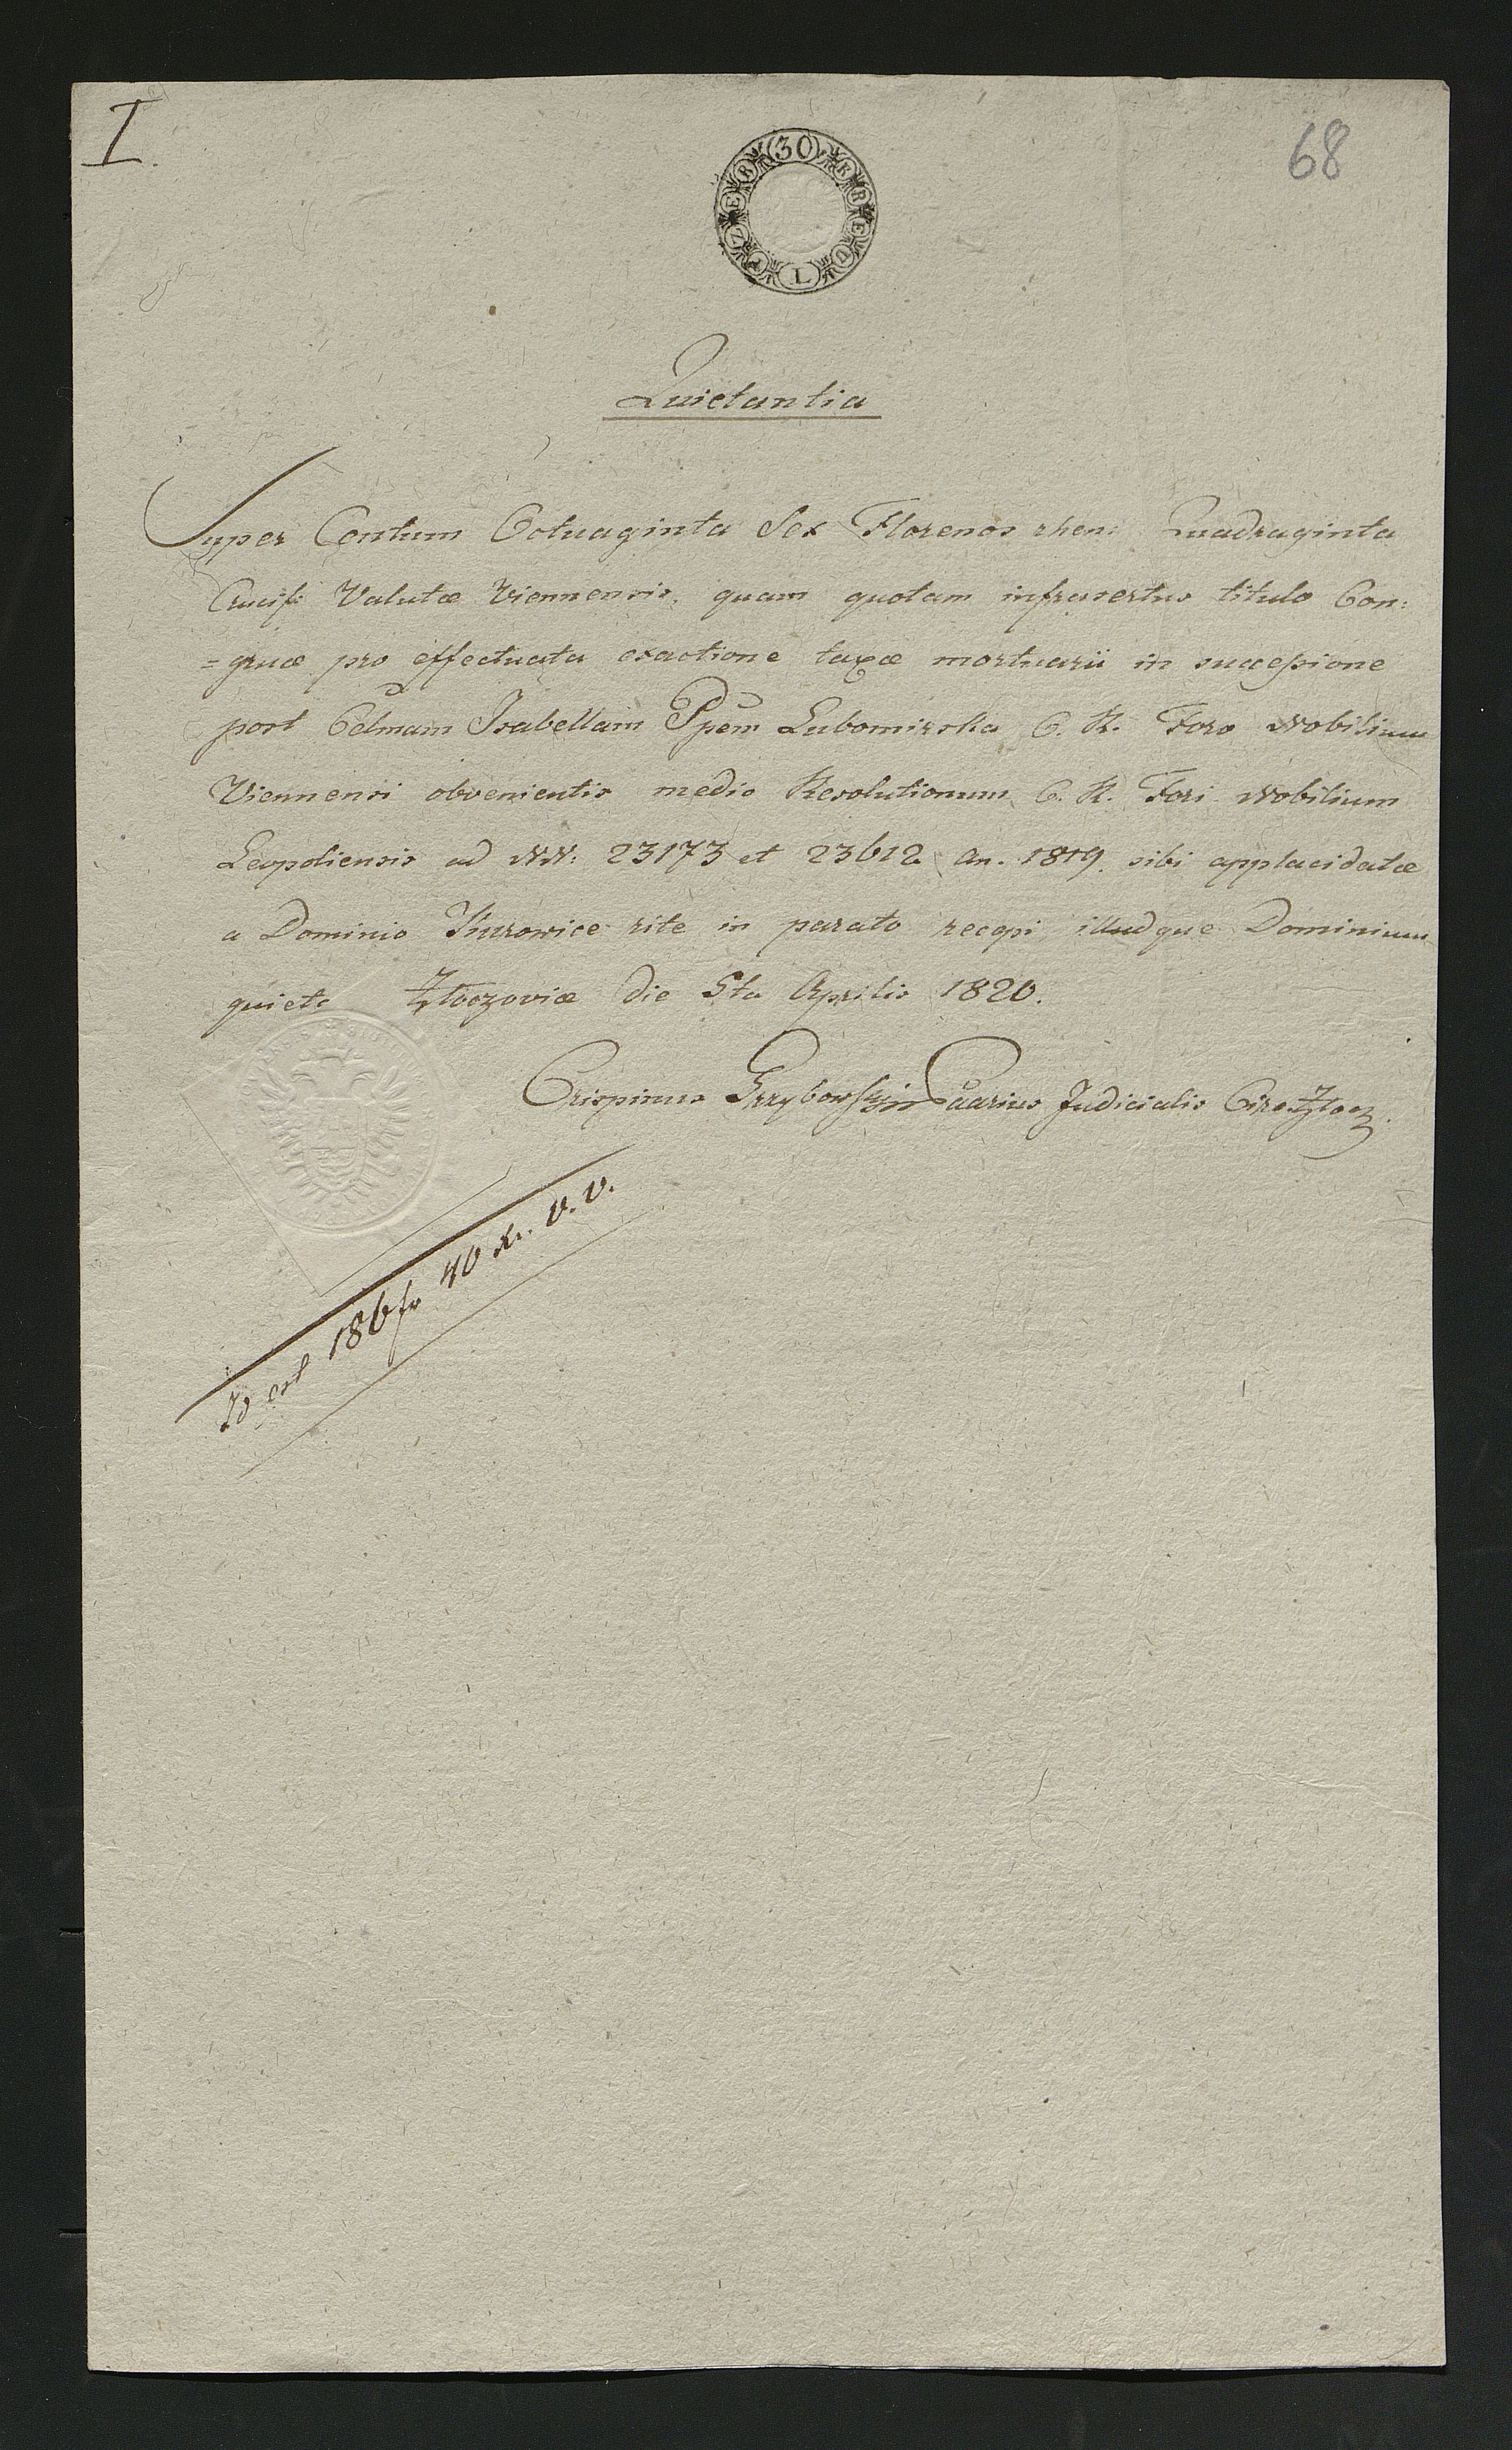 I.
68
30 KREUTZER
Quietantia
Super Centum Octuaginta Sex Florenos rhen: Quadraginta
Crucif: Valutæ Viennensis, quam quotam infrasertus titulo Con:
=gruæ pro effectuata exactione taxæ mortuarii in successione
post Celmam Isabellam Ppem Lubomirska C. R. Foro Nobilium
Viennensi obvenientis medio Resolutionum C. R. Fori Nobilium
Leopoliensis ad NN: 23173 et 23612 An. 1819. sibi applacidatæ
a Dominio Kurowice rite in parato recepi, illudque Dominium
quieto Złoczoviæ die 5ta Aprilis 1820.
Crispinus Grzybowski Judicialis Circ. Złocz.
Id est 186 fr 40 Xr. V. V.